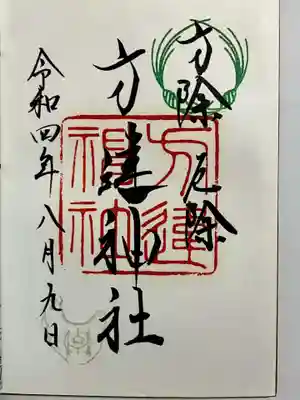 方除 厄除
方違神社
令和四年八月九日
方違
神社